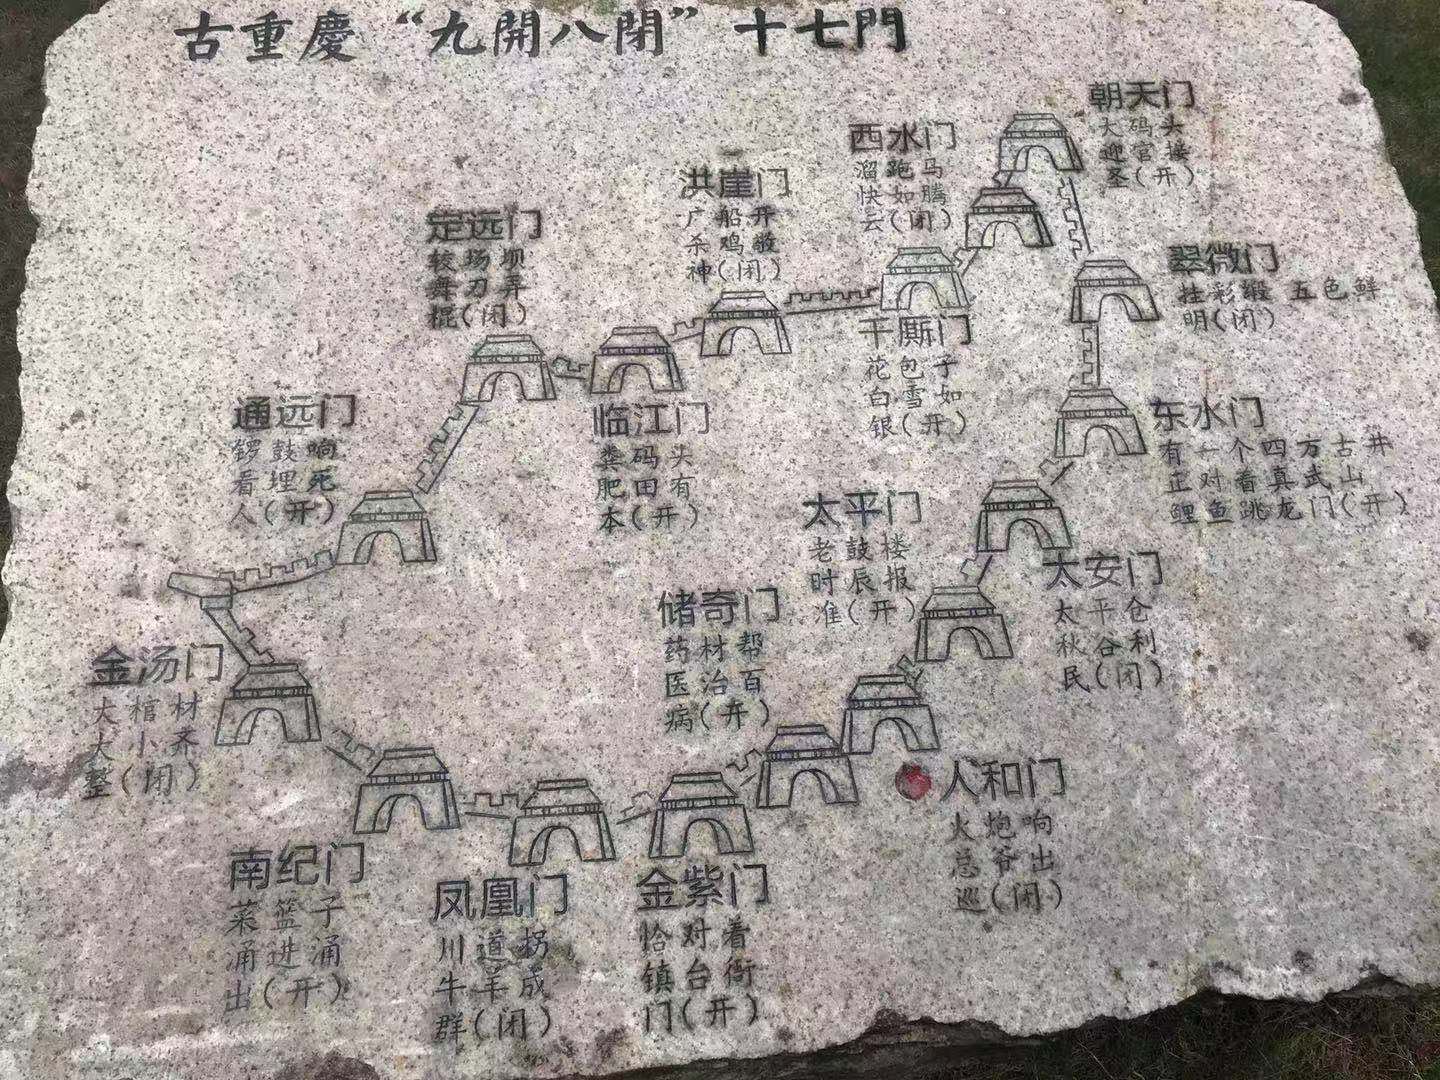 古重慶“九開八閉”十七門
朝天门
大码头
迎官接
圣(开)
西水门
溜跑马
快如腾
云(闭)
洪崖门
广船开
杀鸡敬
神(闭)
定远门
较场坝
舞刀弄
棍(闭)
翠微门
挂彩缎 五色鲜
明(闭)
千厮门
花包子
白雪如
银(开)
通远门
锣鼓响
看埋死
人(开)
临江门
粪码头
肥田有
本(开)
东水门
有一个四方古井
正对着真武山
鲤鱼跳龙门(开)
太平门
老鼓楼
时辰报
准(开)
太安门
太平仓
秋谷利
民(闭)
储奇门
药材帮
医治百
病(开)
金汤门
大棺材
大小齐
整(闭)
人和门
火炮响
总爷出
巡(闭)
南纪门
菜篮子
涌进涌
出(开)
凤凰门
川道拐
牛羊成
群(闭)
金紫门
恰对着
镇台衙
门(开)